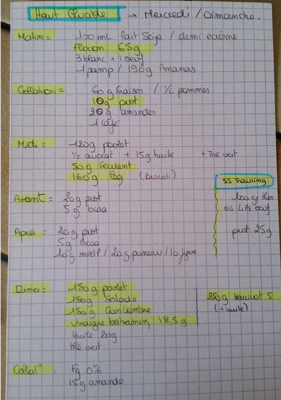 Haut Glucide → Mercredi / Dimanche.
Matin = 150 mL lait soja / demi écrémé
flocon 65g
3 blanc + 1 oeuf
/ 190g Ananas
Collation = 60g raisin / 1/2 pommes
10g prot
20g amandes
1 café
Midi = 120g poulet
1/2 avocat + 15g huile + the vert
50g féculent
160g leg (Brocoli)
SS Training
Avant = 20g prot
5g bcaa
100g
ou
prot 25g
Apres = 20g prot
5g bcaa
10g miell / 20g
Diner = 150g poulet
150g Salade
150g Concombre
vinaigre balsamique 18,5g
huile 20g
thé vert
250g haricot
(+ huile)
Colat° = Fg 0%
15g amande